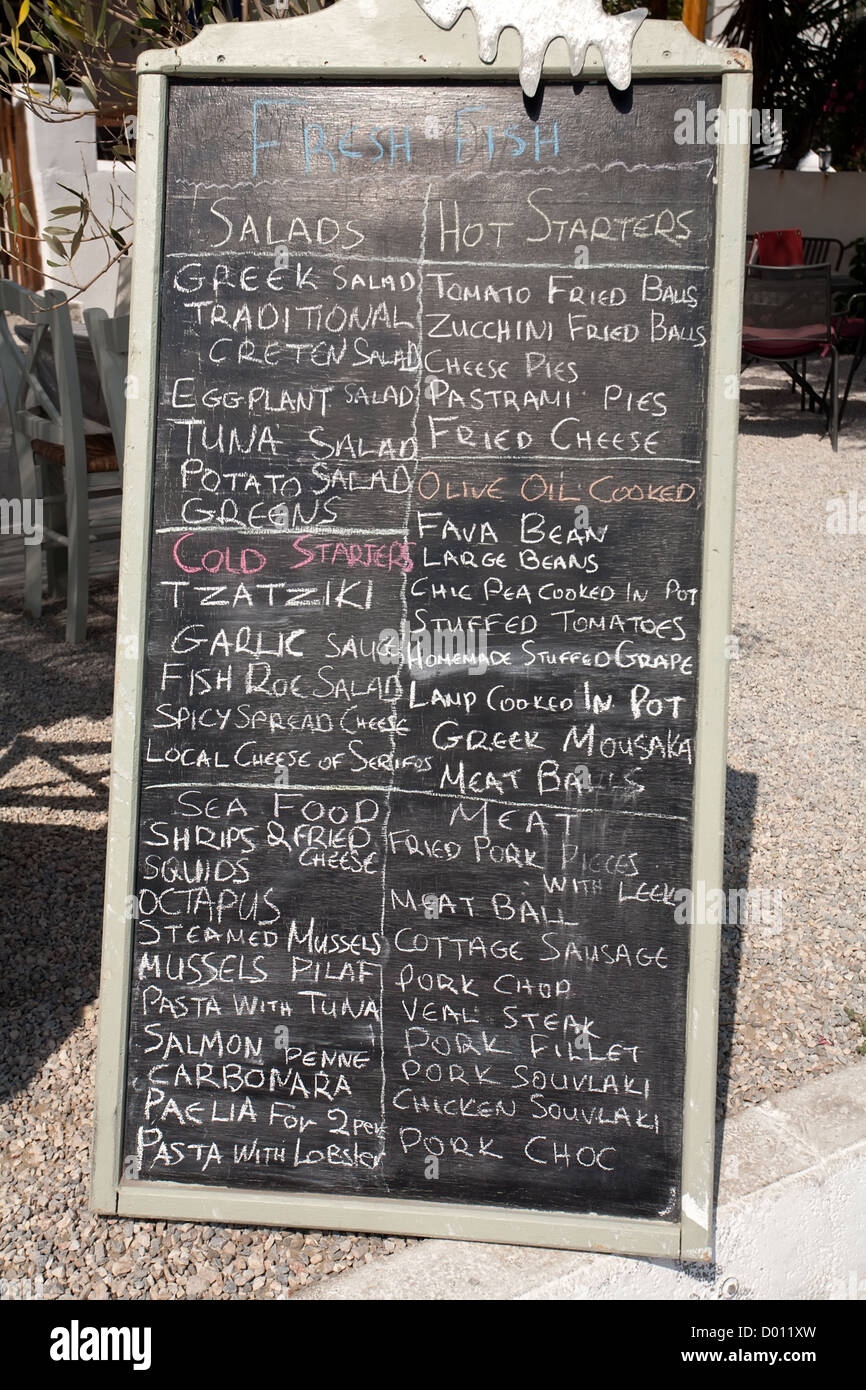 FRESH FISH
SALADS
GREEK SALAD
TRADITIONAL
CRETEN SALAD
EGGPLANT SALAD
TUNA SALAD
POTATO SALAD
GREENS
COLD STARTERS
TZATZIKI
GARLIC SAUCE
FISH ROE SALAD
SPICY SPREAD CHEESE
LOCAL CHEESE OF SERIFOS
SEA FOOD
SHRIPS & FRIED
CHEESE
SQUIDS
OCTAPUS
STEAMED MUSSELS
MUSSELS PILAF
PASTA WITH TUNA
SALMON PENNE
CARBONARA
PAELIA FOR 2 PER
PASTA WITH LOBSTER
HOT STARTERS
TOMATO FRIED BALLS
ZUCCHINI FRIED BALLS
CHEESE PIES
PASTRAMI PIES
FRIED CHEESE
OLIVE OIL COOKED
FAVA BEAN
LARGE BEANS
CHIC PEA COOKED IN POT
STUFFED TOMATOES
HOMEMADE STUFFED GRAPE
LAMP COOKED IN POT
GREEK MOUSAKA
MEAT BALLS
MEAT
FRIED PORK PIECES
WITH LEEK
MEAT BALL
COTTAGE SAUSAGE
PORK CHOP
VEAL STEAK
PORK FILLET
PORK SOUVLAKI
CHICKEN SOUVLAKI
PORK CHOC
alamy
a
alamy
alamy
Image ID: D011XW
www.alamy.com
alamy stock photo